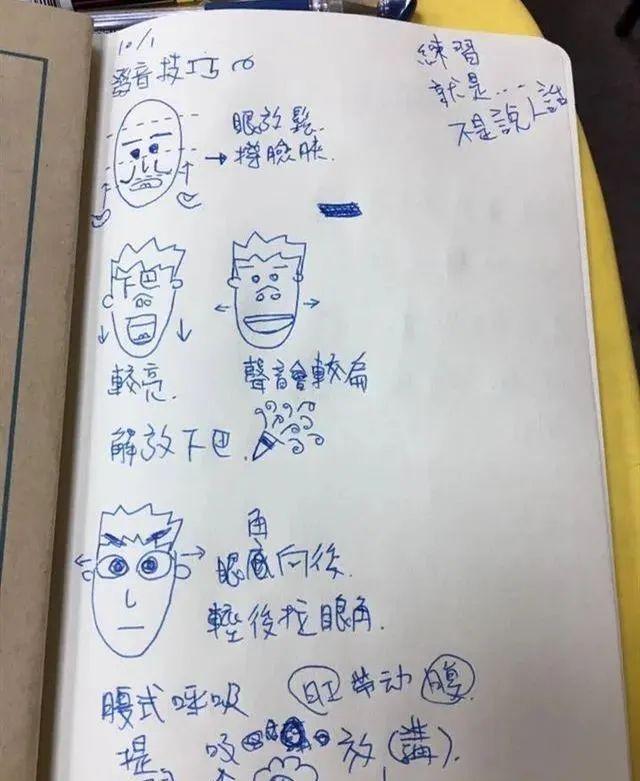 10/1
練習
就是...
不是說人話
發音技巧
眼放鬆
→ 撐臉頰
下巴
較亮.
聲音會較扁
解放下巴.
角
眼 向後.
輕後拉眼角.
腹式呼吸 肛帶动腹
提 吸 放(講).